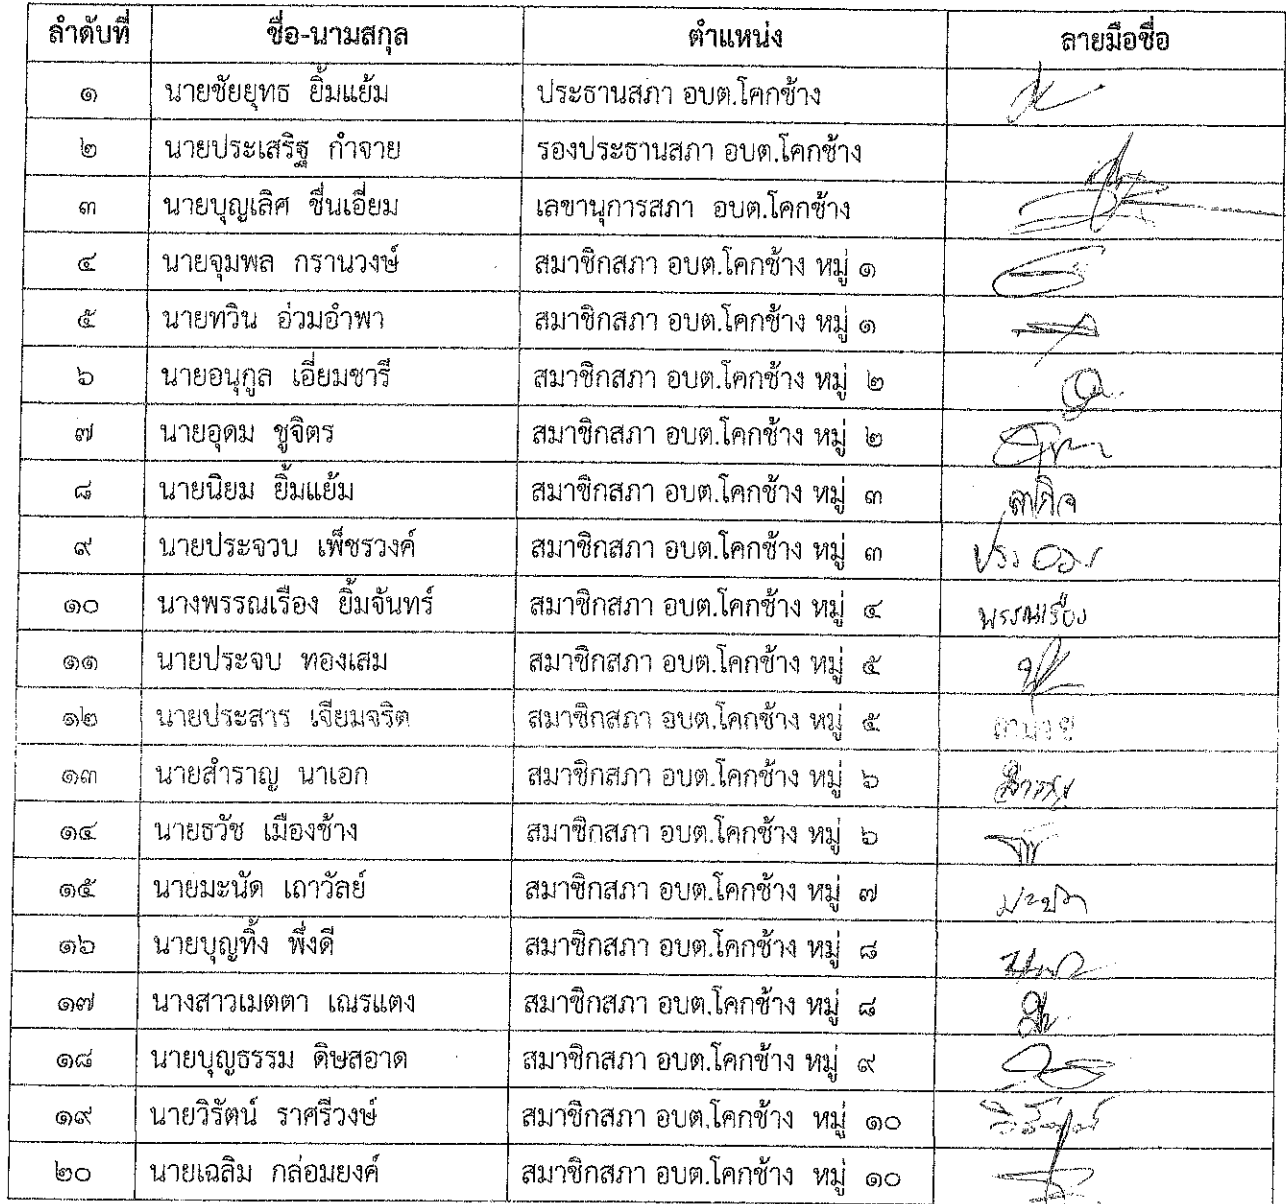 ลำดับที่ ชื่อ-นามสกุล ตำแหน่ง ลายมือชื่อ
๑ นายชัยยุทธ ยิ้มแย้ม ประธานสภา อบต.โคกช้าง
๒ นายประเสริฐ กำจาย รองประธานสภา อบต.โคกช้าง
๓ นายบุญเลิศ ชื่นเอี่ยม เลขานุการสภา อบต.โคกช้าง
๔ นายจุมพล กรานวงษ์ สมาชิกสภา อบต.โคกช้าง หมู่ ๑
๕ นายทวิน อ่วมอำพา สมาชิกสภา อบต.โคกช้าง หมู่ ๑
๖ นายอนุกูล เอี่ยมชารี สมาชิกสภา อบต.โคกช้าง หมู่ ๒
๗ นายอุดม ชูจิตร สมาชิกสภา อบต.โคกช้าง หมู่ ๒
๘ นายนิยม ยิ้มแย้ม สมาชิกสภา อบต.โคกช้าง หมู่ ๓
๙ นายประจวบ เพ็ชรวงค์ สมาชิกสภา อบต.โคกช้าง หมู่ ๓
๑๐ นางพรรณเรือง ยิ้มจันทร์ สมาชิกสภา อบต.โคกช้าง หมู่ ๔ พรรณเรือง
๑๑ นายประจบ ทองเสม สมาชิกสภา อบต.โคกช้าง หมู่ ๕
๑๒ นายประสาร เจียมจริต สมาชิกสภา อบต.โคกช้าง หมู่ ๕
๑๓ นายสำราญ นาเอก สมาชิกสภา อบต.โคกช้าง หมู่ ๖
๑๔ นายธวัช เมืองช้าง สมาชิกสภา อบต.โคกช้าง หมู่ ๖
๑๕ นายมะนัด เถาวัลย์ สมาชิกสภา อบต.โคกช้าง หมู่ ๗
๑๖ นายบุญทิ้ง พึ่งดี สมาชิกสภา อบต.โคกช้าง หมู่ ๘
๑๗ นางสาวเมตตา เณรแตง สมาชิกสภา อบต.โคกช้าง หมู่ ๘
๑๘ นายบุญธรรม ดิษสอาด สมาชิกสภา อบต.โคกช้าง หมู่ ๙
๑๙ นายวิรัตน์ ราศรีวงษ์ สมาชิกสภา อบต.โคกช้าง หมู่ ๑๐
๒๐ นายเฉลิม กล่อมยงค์ สมาชิกสภา อบต.โคกช้าง หมู่ ๑๐